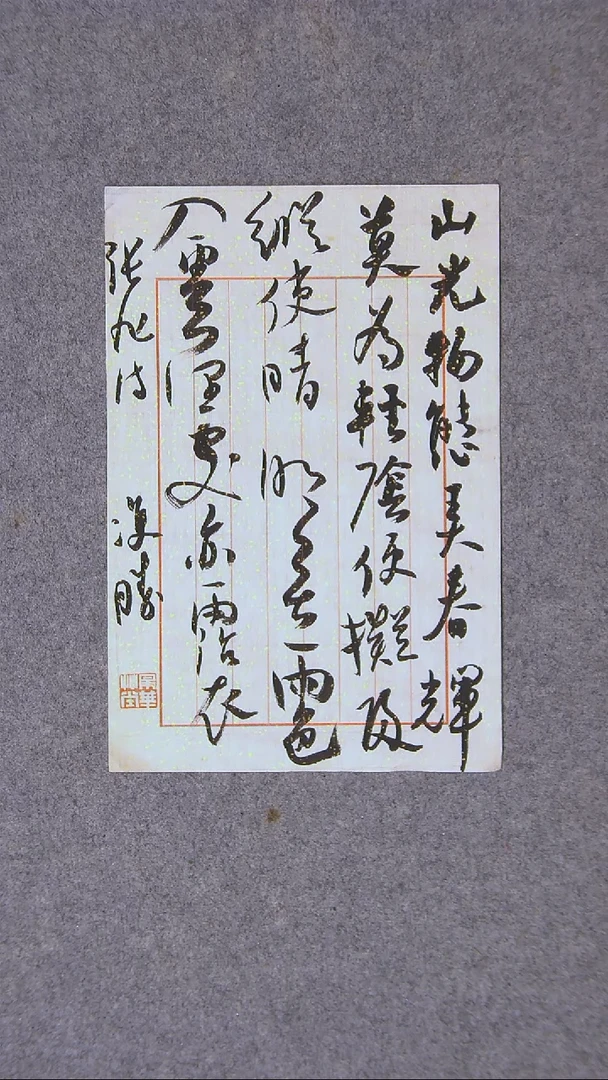 山光物態弄春輝
莫為輕陰便擬歸
縱使晴明無雨色
入雲深處亦霑衣
張旭詩
復勝